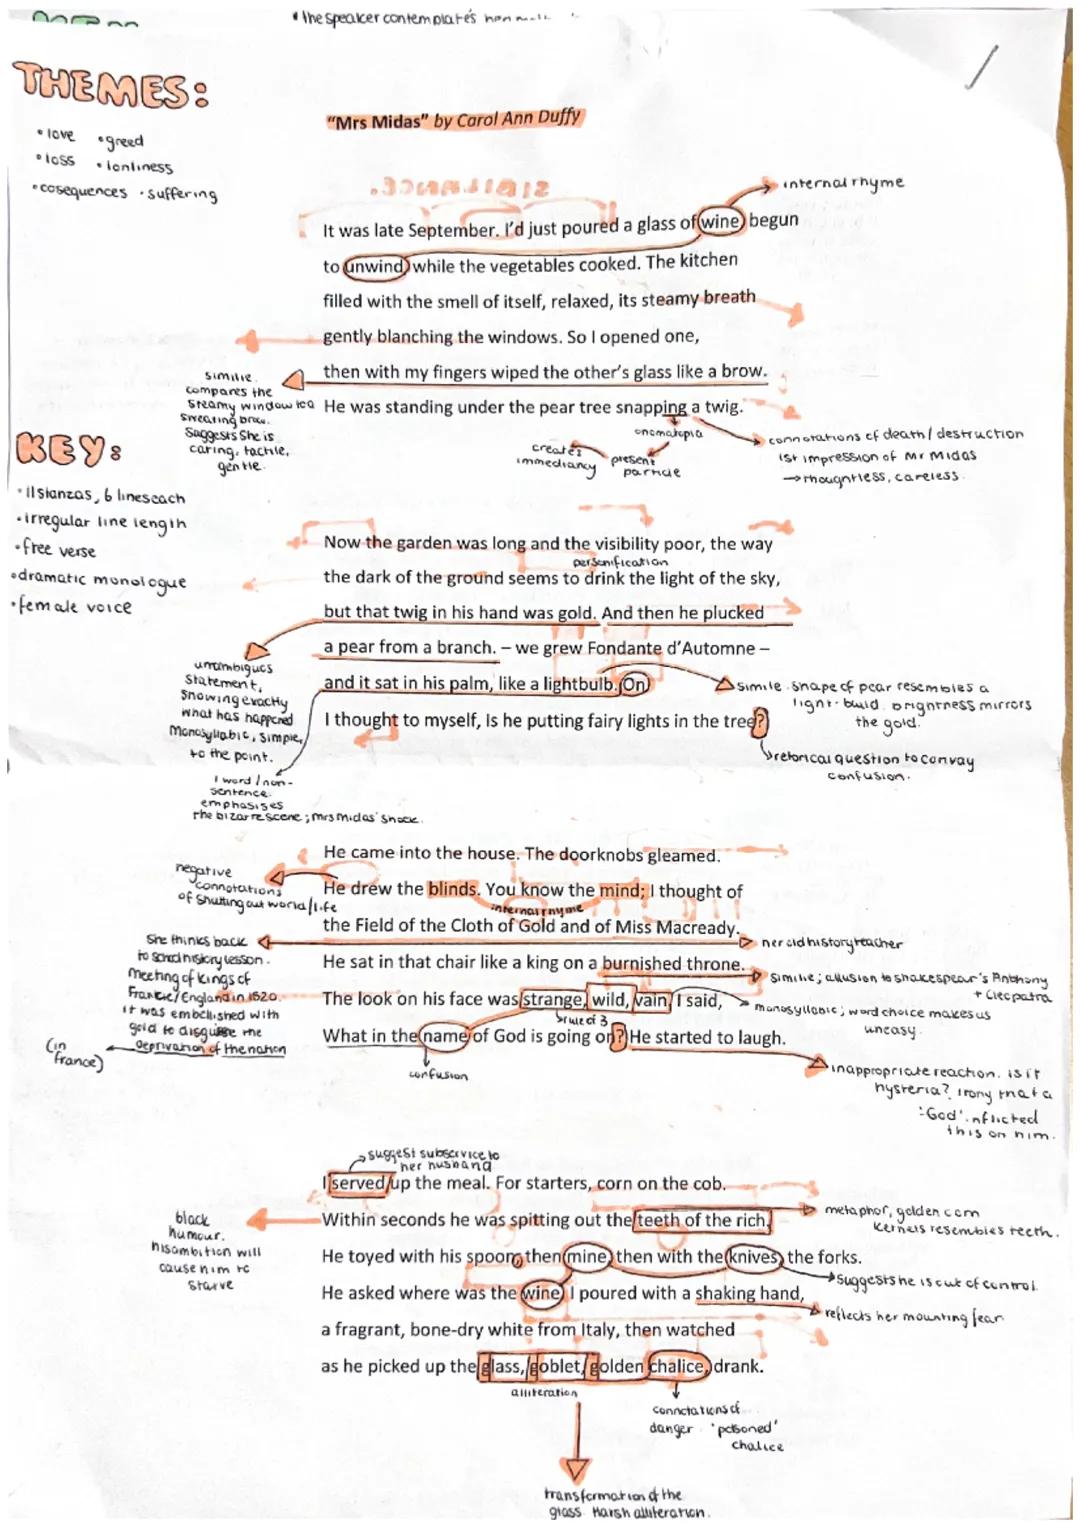 • The speaker contemplates
THEMES:
• love • greed
• loss • lonliness
• cosequences • suffering
"Mrs Midas" by Carol Ann Duffy
internal rhyme
It was late September. I'd just poured a glass of wine, begun
to unwind, while the vegetables cooked. The kitchen
filled with the smell of itself, relaxed, its steamy breath
gently blanching the windows. So I opened one,
then with my fingers wiped the other's glass like a brow.
He was standing under the pear tree snapping a twig.
similie.
compares the
steamy window to a
sweating brow.
Suggests she is
caring, tactile,
gentle.
onomatopia
creates
immediancy
present
particle
connotations of death/destruction
1st impression of Mr Midas
→ thoughtless, careless.
KEY:
• 11 stanzas, 6 lines each
• irregular line length
• free verse
• dramatic monologue
• female voice
Now the garden was long and the visibility poor, the way
personification
the dark of the ground seems to drink the light of the sky,
but that twig in his hand was gold. And then he plucked
a pear from a branch. – we grew Fondante d'Automne –
and it sat in his palm, like a lightbulb. On.
I thought to myself, Is he putting fairy lights in the tree?
unambigucs
statement,
showing exactly
what has happened
Monosyllabic, simple,
to the point.
1 word/non-
sentence.
emphasises
the bizarre scene; mrs midas' shock.
simile. shape of pear resembles a
light-bulb. brightness mirrors
the gold.
retorical question to convay
confusion.
He came into the house. The doorknobs gleamed.
He drew the blinds. You know the mind; I thought of
internal rhyme
the Field of the Cloth of Gold and of Miss Macready.
He sat in that chair like a king on a burnished throne.
The look on his face was strange, wild, vain, I said,
rule of 3
What in the name of God is going on? He started to laugh.
confusion
negative
connotations
of shutting out world/life
She thinks back
to school history lesson.
Meeting of kings of
France/England in 1520.
it was embellished with
gold to disguise the
deprivation of the nation
(in
france)
her old history teacher
similie; allusion to shakespear's Anthony
+ Cleopatra
monosyllabic; word choice makes us
uneasy.
inappropriate reaction. is it
hysteria? irony that a
'God' inflicted
this on him.
suggest subservice to
her husband
I served up the meal. For starters, corn on the cob.
Within seconds he was spitting out the teeth of the rich.
He toyed with his spoon, then mine, then with the knives, the forks.
He asked where was the wine. I poured with a shaking hand,
a fragrant, bone-dry white from Italy, then watched
as he picked up the glass, goblet, golden chalice, drank.
black
humour.
his ambition will
cause him to
starve
metaphor, golden corn
kernels resembles teeth.
suggests he is out of control.
reflects her mounting fear
alliteration
connotations of
danger 'poisoned'
chalice
transformation of the
glass. Harsh alliteration.